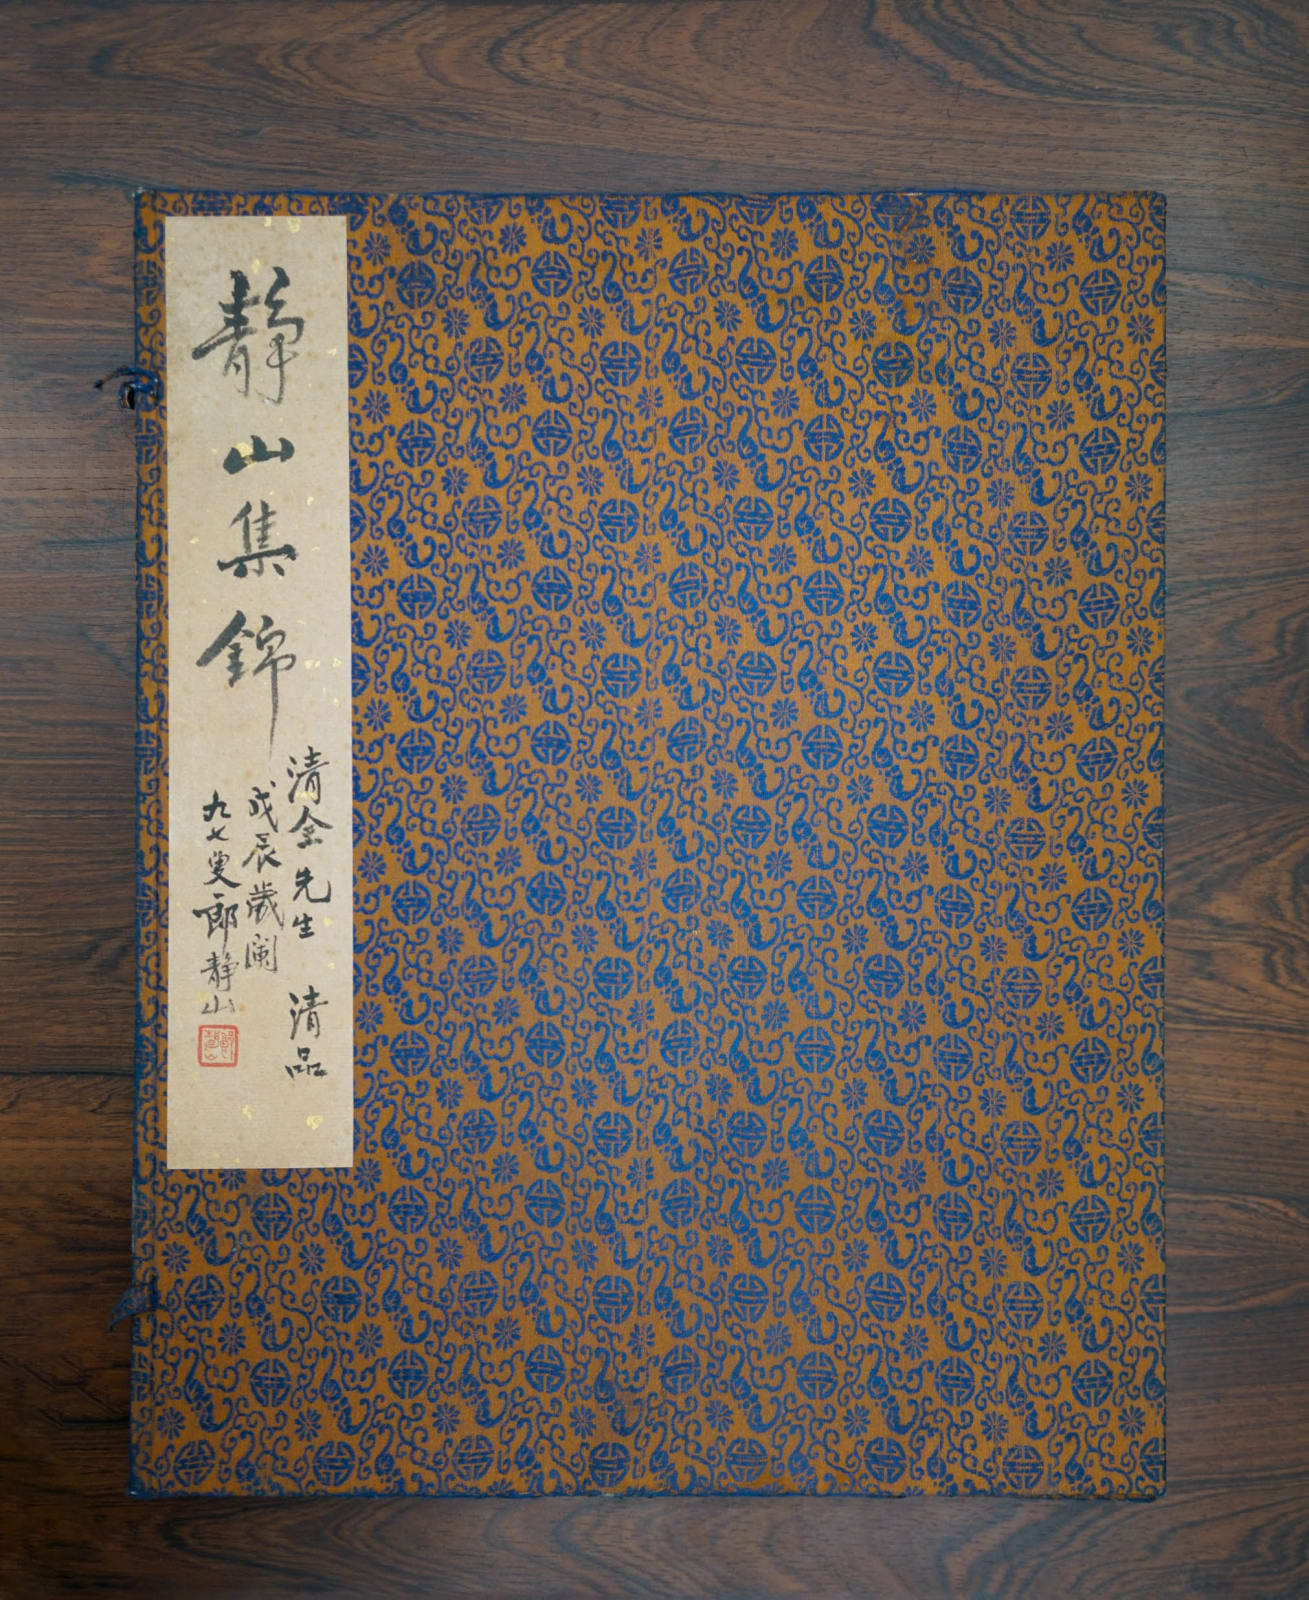 靜山集錦
清全先生 清品
戊辰歲闌
九七叟郎靜山